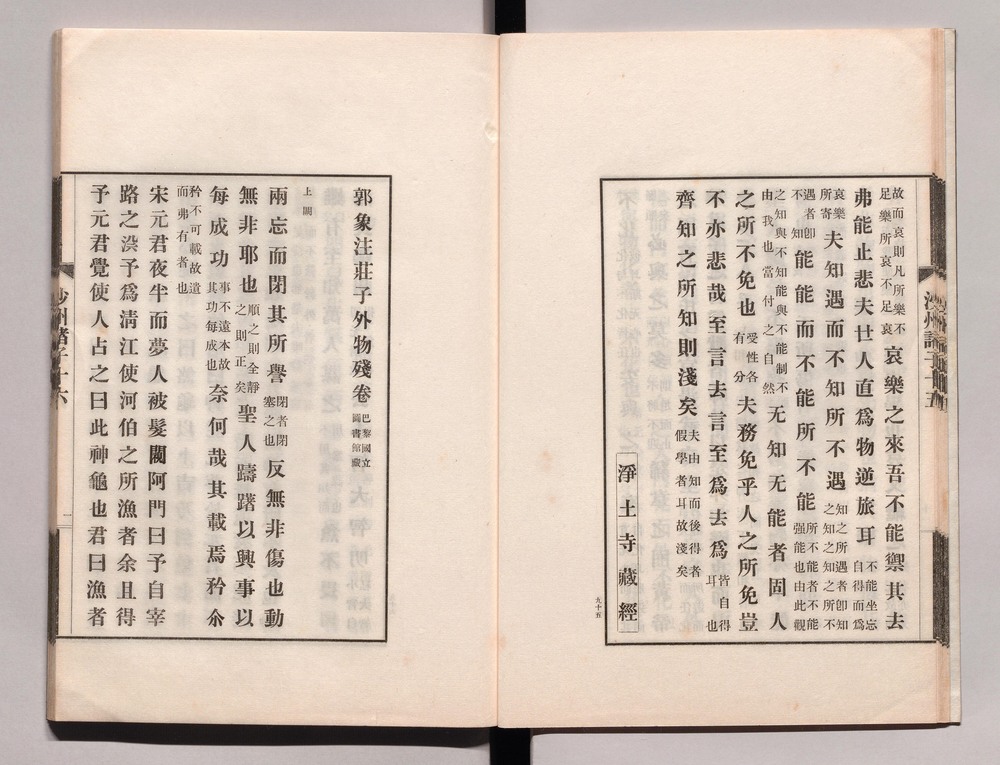 故而哀則凡所樂不足樂所哀不足哀哀樂之來吾不能禦其去
弗能止悲夫世人直為物逆旅耳不能坐忘自得而為
哀樂所寄夫知遇而不知所不遇知之所遇者卽知之知之所不
遇者卽不知能能而不能所不能所不能者不能強能也由此觀
之知與不知能與不能制不由我也當付之自然无知无能者固人
之所不免也受性各有分夫務免乎人之所免豈
不亦悲哉至言去言至為去為皆自得耳也
齊知之所知則淺矣夫由知而後得者假學者耳故淺矣
淨土寺藏經
沙州諸子十五
九十五
郭象注莊子外物殘卷巴黎國立圖書館藏
上闕
兩忘而閉其所譽閉者閉塞之也反無非傷也動
無非耶也順之則全靜之則正矣聖人躊躇以興事以
每成功事不遠本故其功每成也奈何哉其載焉矜尒
矜不可載故遣而弗有者也
宋元君夜半而夢人被髮闚阿門曰予自宰
路之淵予為清江使河伯之所漁者余且得
予元君覺使人占之曰此神龜也君曰漁者
沙州諸子十六
一